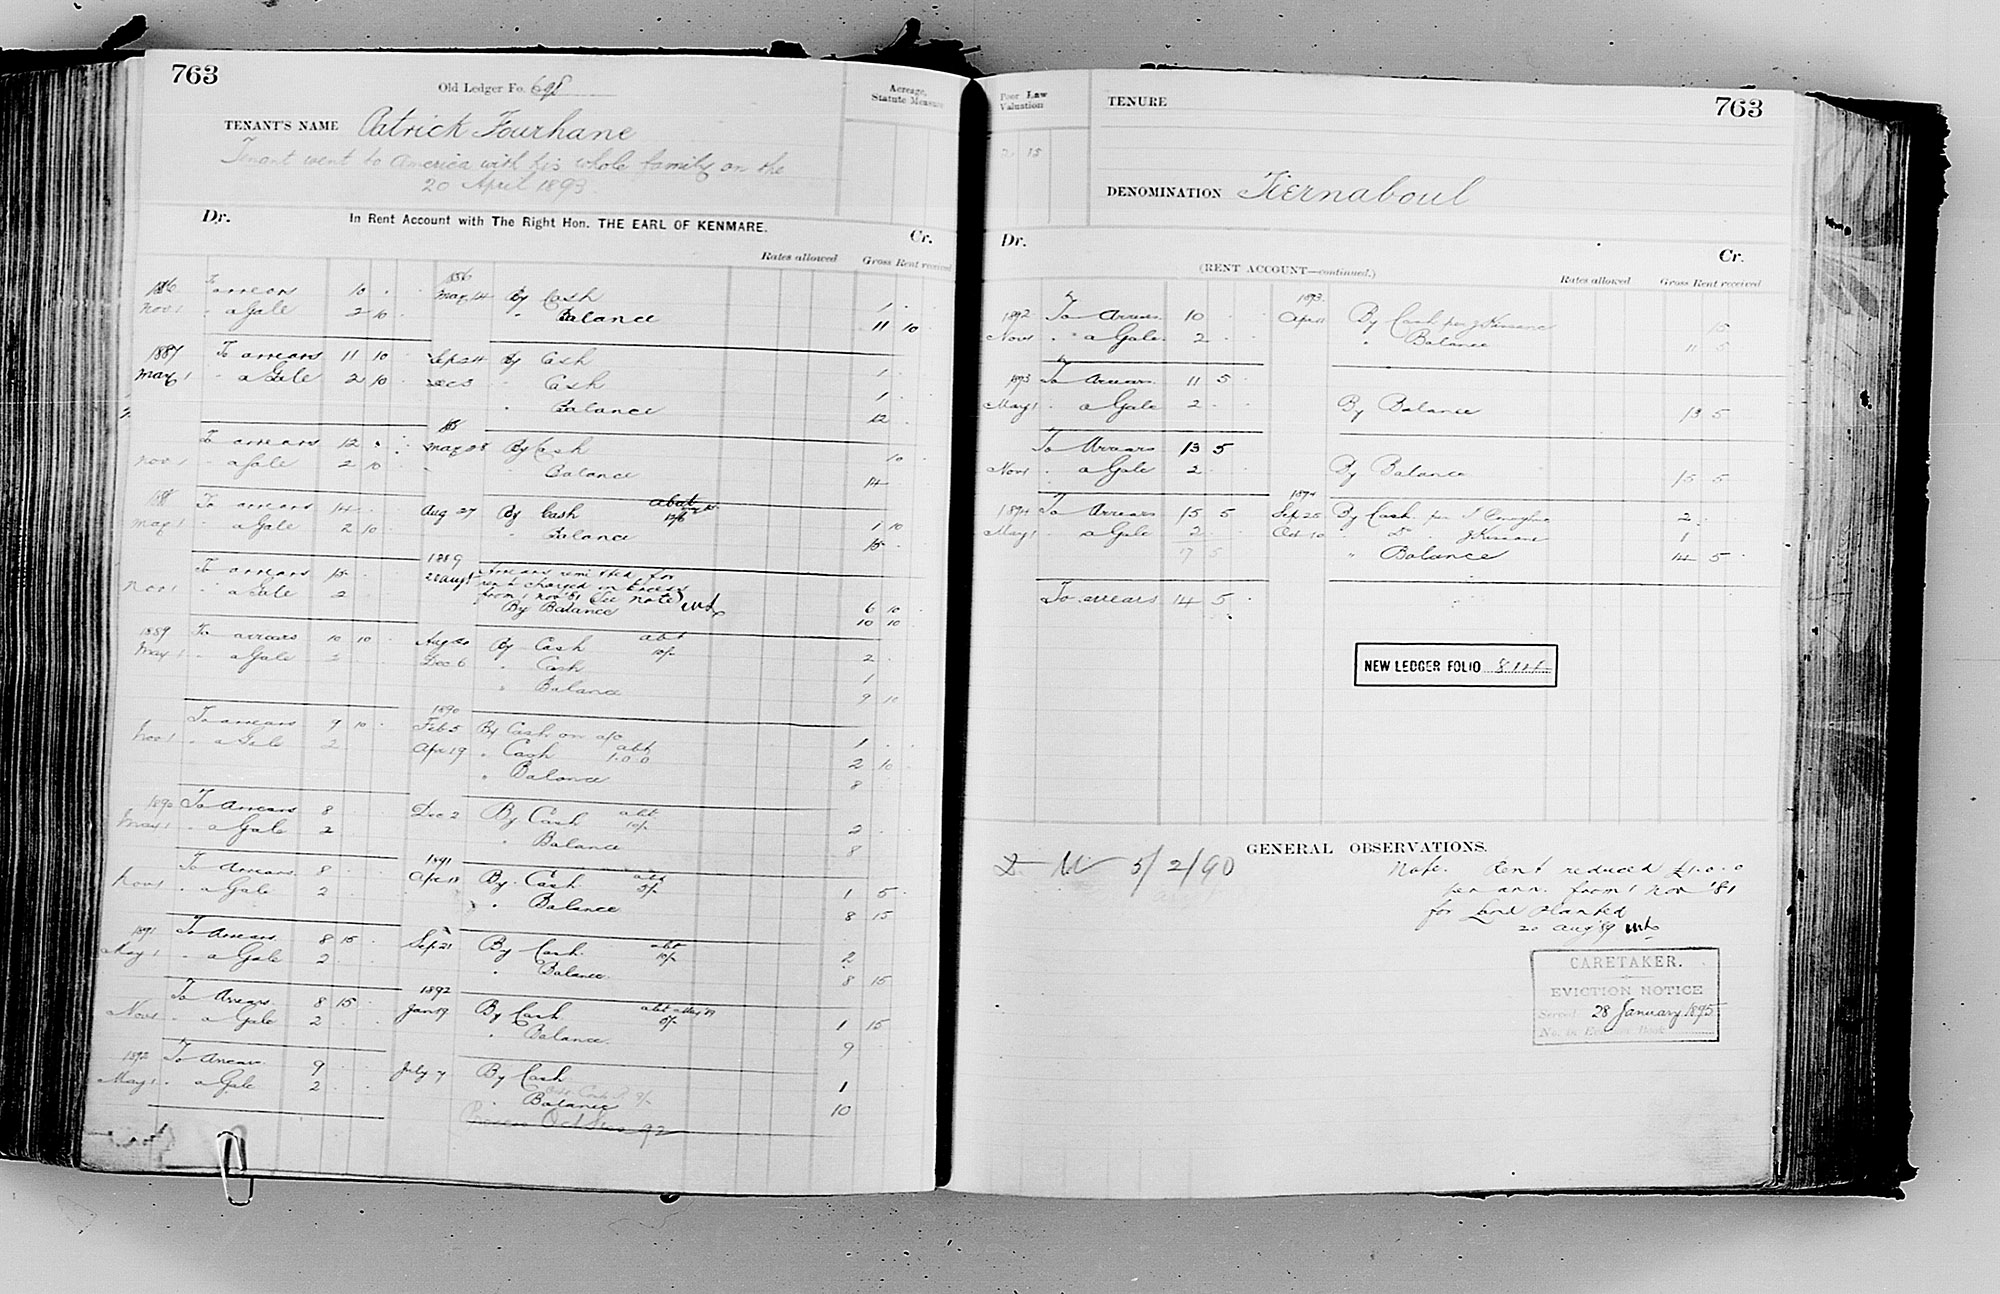 763
Old Ledger Fo. 698
Acreage, Statute Measure
TENANT'S NAME Patrick Fourhane
Tenant went to America with his whole family on the
20 April 1893.
Dr. In Rent Account with The Right Hon. THE EARL OF KENMARE. Cr.
Rates allowed Gross Rent received
1886 To arrears 10 1886 May 14 By Cash 1
Nov 1 " a Gale 2 10 " Balance 11 10
1887 To arrears 11 10 Sep 24 By Cash 1
May 1 " a Gale 2 10 Dec 3 " Cash 1
" Balance 12
To arrears 12 May 28 By Cash 10
Nov 1 " a Gale 2 10 Balance 14
188 To arrears 14 Aug 27 By Cash 1 10
May 1 " a Gale 2 10 " Balance 15
To arrears 15 1889 22 Augt Arrears remitted for
rent charged in Excess
Nov 1 " a Gale 2 from 1 Nov '81 (See note) 6 10
By Balance 10 10
1889 To arrears 10 10 Aug 20 By Cash abt 10/- 2
May 1 " a Gale 2 Dec 6 " Cash 1
" Balance 9 10
1890
To arrears 9 10 Feb 5 By Cash on a/c 1
Nov 1 " a Gale 2 Apr 19 " Cash abt 1.0.0 2 10
" Balance 8
1890 To Arrears 8 Dec 2 By Cash abt 10/- 2
May 1 " a Gale 2 " Balance 8
1891
To Arrears 8 Apr 18 By Cash abt 5/- 1 5
Nov 1 " a Gale 2 " Balance 8 15
1891 To Arrears 8 15 Sep 21 By Cash abt 10/- 2
May 1 " a Gale 2 " Balance 8 15
1892
To Arrears 8 15 Jan 19 By Cash 5/- 1 15
Nov 1 " a Gale 2 " Balance 9
1892 To Arrears 9 July 7 By Cash 1
May 1 " a Gale 2 " Balance 10
92
763
Poor Law Valuation
2 15
TENURE
DENOMINATION Tiernaboul
Dr. (RENT ACCOUNT—continued.) Cr.
Rates allowed Gross Rent received
1893
1892 To Arrears 10 Apr By Cash per J Kissane 15
Nov 1 " a Gale 2 " Balance 11 5
1893 To Arrears 11 5
May 1 a Gale 2 By Balance 13 5
To Arrears 13 5
Nov 1 " a Gale 2 By Balance 15 5
1894
1894 To Arrears 15 5 Sep 25 By Cash per 2
May 1 a Gale 2 Oct 10 " Do J Kissane 1
17 5 " Balance 14 5
To arrears 14 5
NEW LEDGER FOLIO
GENERAL OBSERVATIONS.
5/2/90
Note. Rent reduced £1.0.0
per ann. from 1 Nov '81
for Land Planted
20 Aug '89
CARETAKER.
EVICTION NOTICE
Served 28 January 1895
No. in Eviction Book